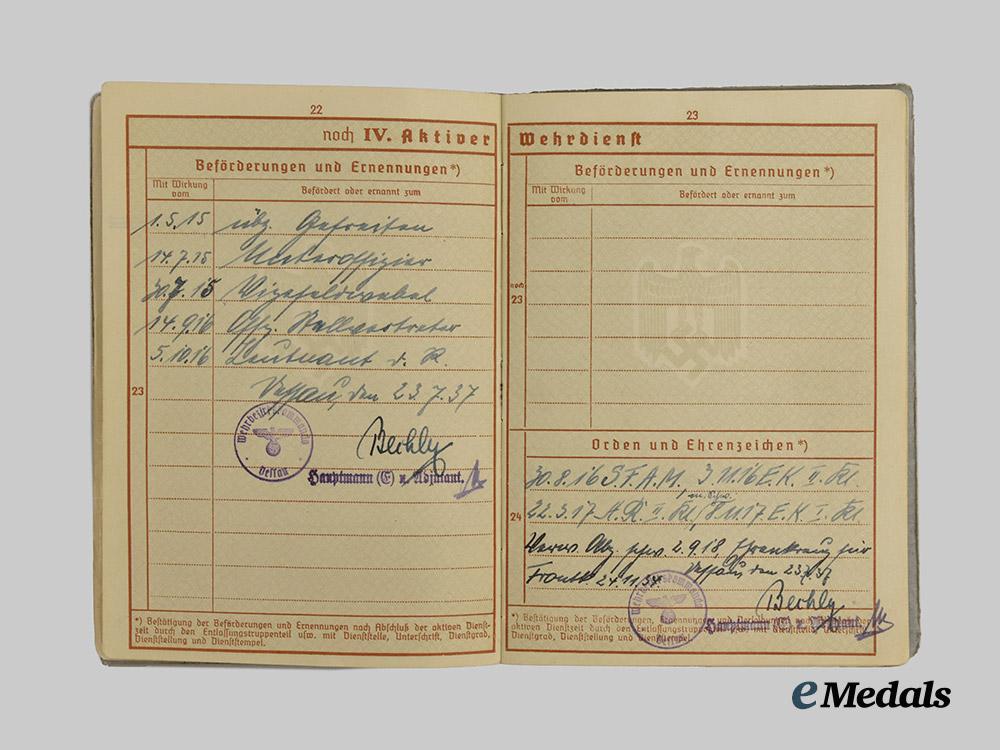 22
noch IV. Aktiver
Beförderungen und Ernennungen*)
Mit Wirkung vom
Befördert oder ernannt zum
1.5.15 übz. Gefreiten
14.7.15 Unteroffizier
30.7.15 Vizefeldwebel
14.9.16 Offz. Stellvertreter
5.10.16 Leutnant d. R.
23
Dessau, den 23.7.37
Wehrbezirkskommando
Dessau
Bechly
Hauptmann (E) u. Adjutant.
*) Bestätigung der Beförderungen und Ernennungen nach Abschluß der aktiven Dienst-
zeit durch den Entlassungstruppenteil usw. mit Dienststelle, Unterschrift, Dienstgrad,
Dienststellung und Dienststempel.
23
Wehrdienst
Beförderungen und Ernennungen*)
Mit Wirkung vom
Befördert oder ernannt zum
noch
23
Orden und Ehrenzeichen*)
30.8.16 S.F.A.M. 3.11.16 E.K. II. Kl.
22.3.17 A.R. II. Kl. m. Schw. 8.11.17 E.K. I. Kl.
24
Verw. Abz. schw. 2.9.18, Ehrenkreuz für
Frontk. 24.11.34 Dessau, den 23.7.37
Bechly
Hauptmann (E) u. Adjutant.
*) Bestätigung der Beförderungen, Ernennungen
aktiven Dienstzeit durch den Entlassungstruppenteil
Dienstgrad, Dienststellung und Dienststempel
eMedals